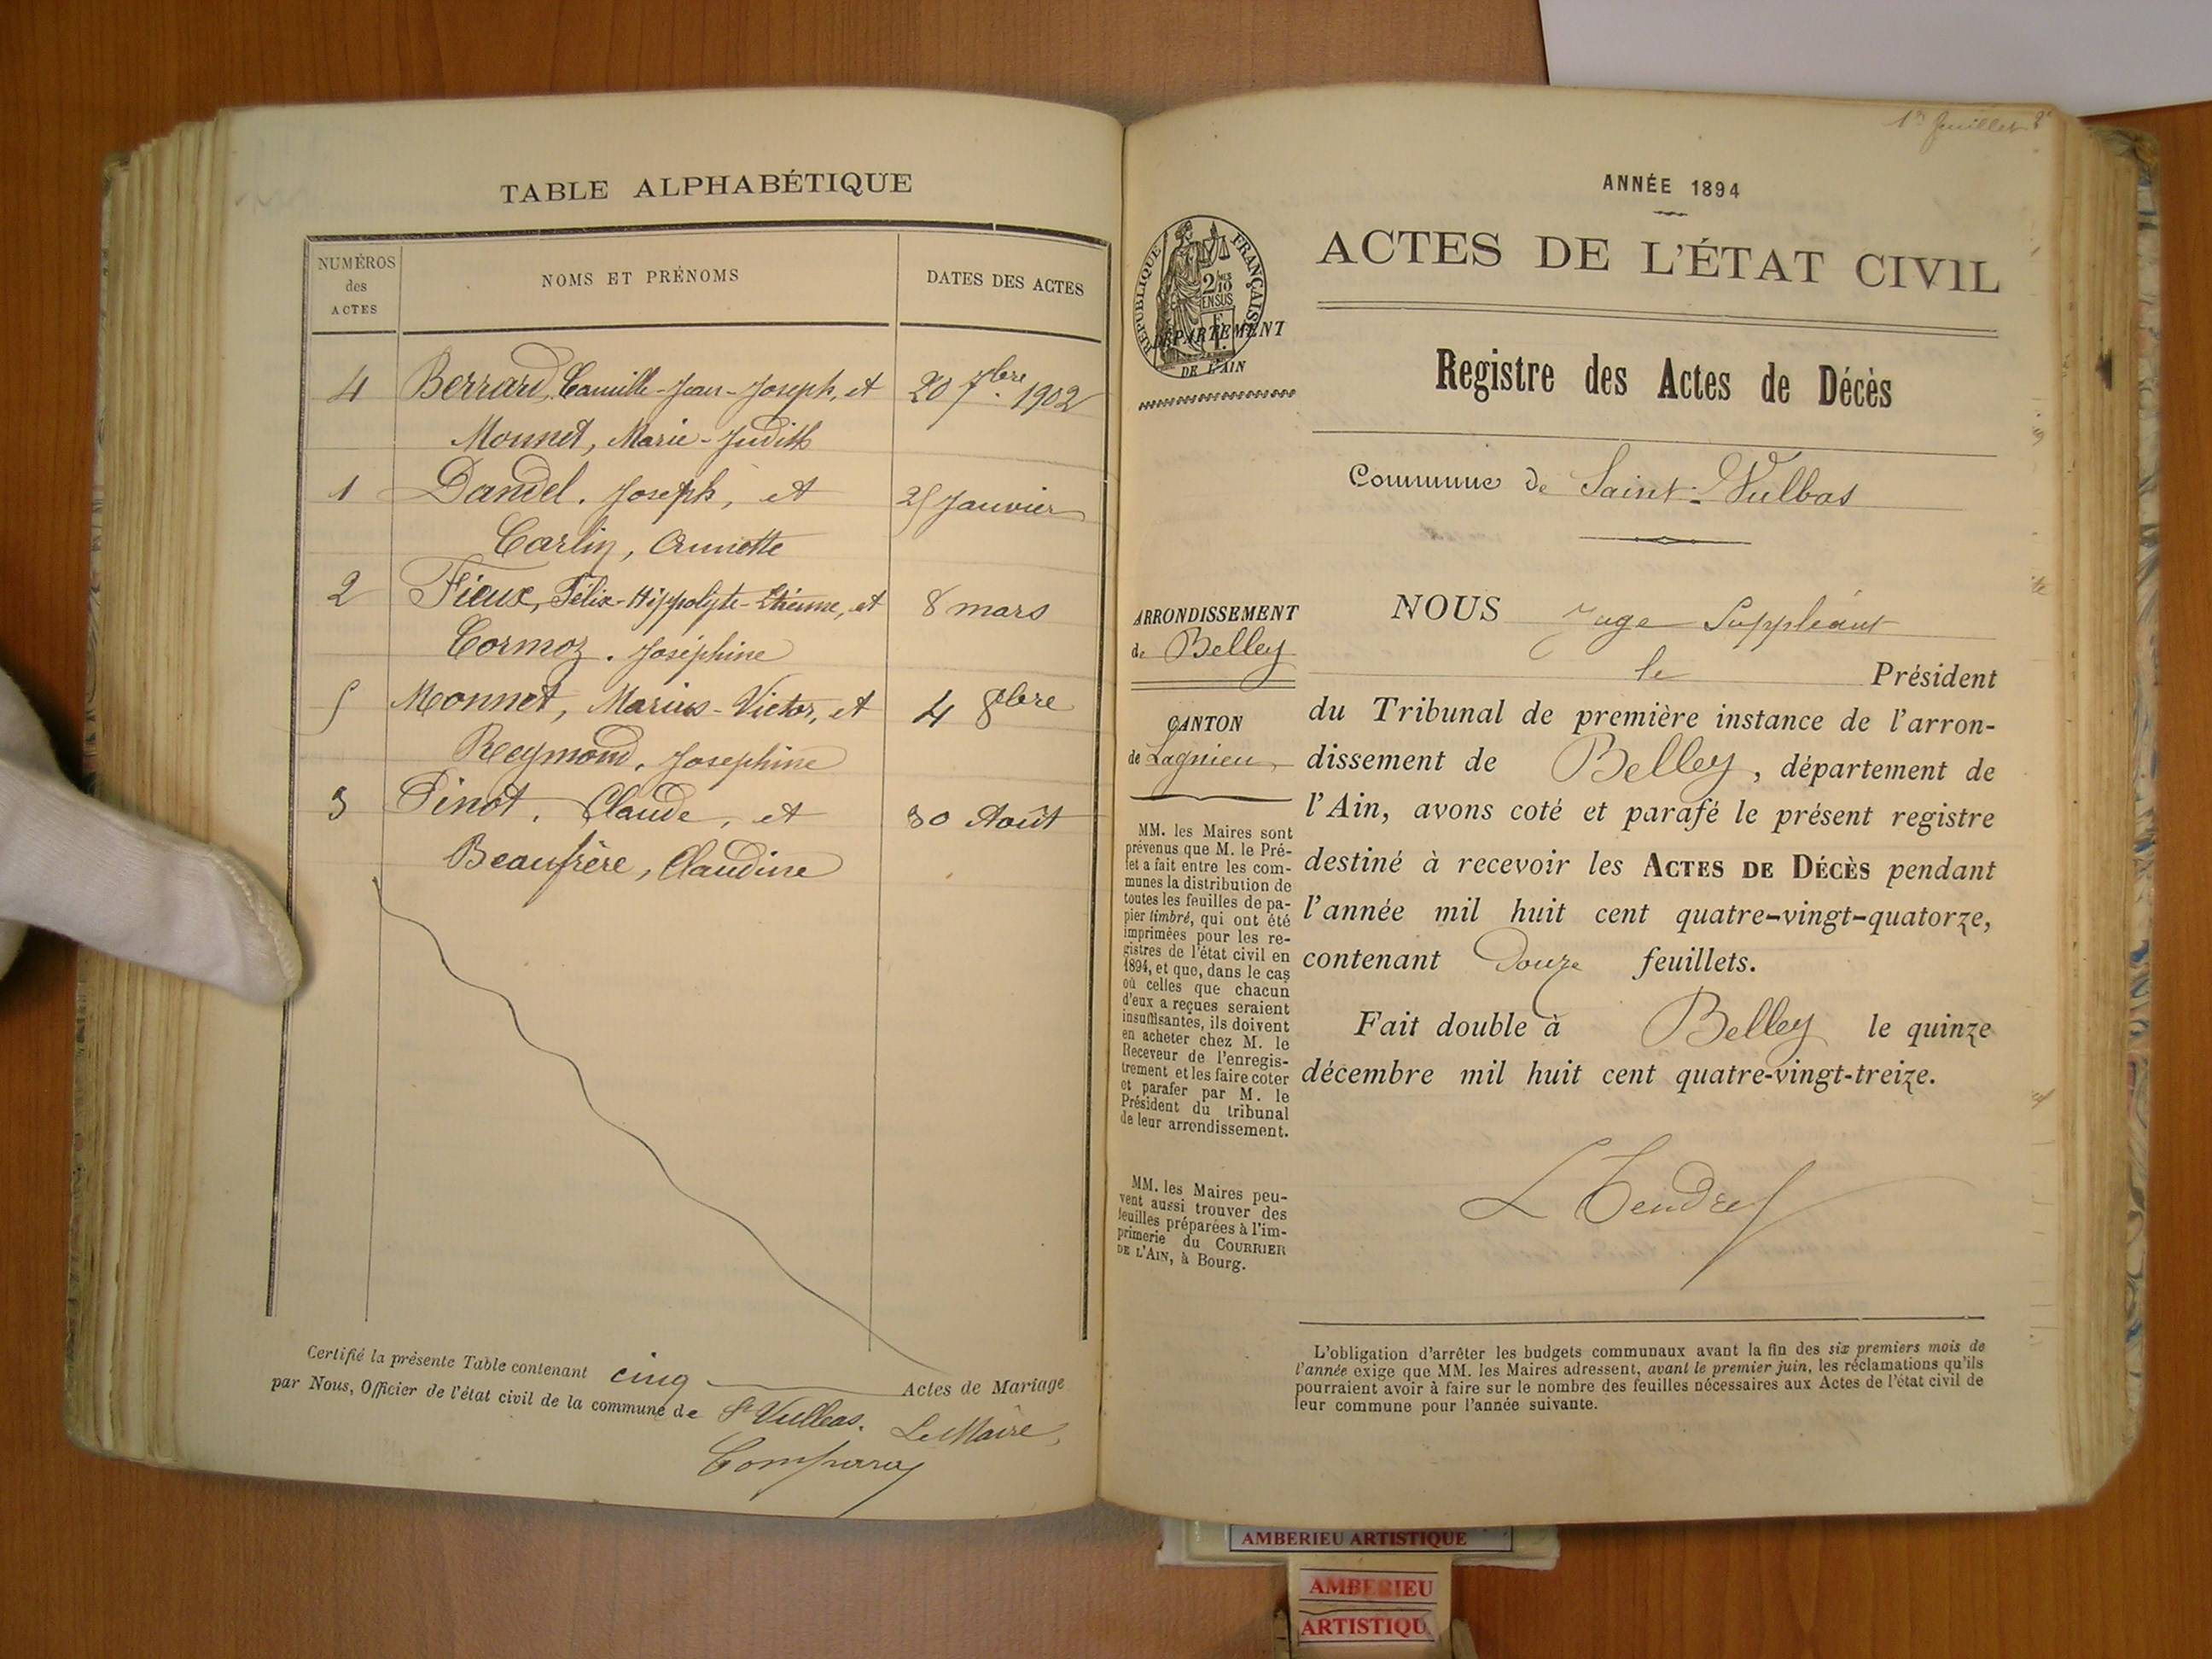 TABLE ALPHABÉTIQUE
NUMÉROS
des
ACTES
NOMS ET PRÉNOMS
DATES DES ACTES
4 Berrard, Camille-Jean-Joseph, et 20 7bre. 1902
Monnet, Marie-Judith
1 Dandel. Joseph, et 25 Janvier
Carlin, Annette
2 Fieux, Félix-Hippolyte-Etienne, et 8 mars
Cormoz. Joséphine
5 Monnet, Marius-Victor, et 4 8bre
Reymond, Josephine
3 Pinot, Claude, et 30 Août
Beaufrère, Claudine
Certifié la présente Table contenant cinq Actes de Mariage
par Nous, Officier de l'état civil de la commune de St Vulbas. Le Maire,
1er feuillet
ANNÉE 1894
ACTES DE L'ÉTAT CIVIL
RÉPUBLIQUE FRANÇAISE
2/10
EN SUS
DÉPARTEMENT
DE L'AIN
Registre des Actes de Décès
Commune de Saint-Vulbas
ARRONDISSEMENT
de Belley
CANTON
de Lagnieu
MM. les Maires sont
prévenus que M. le Pré-
fet a fait entre les com-
munes la distribution de
toutes les feuilles de pa-
pier timbré, qui ont été
imprimées pour les re-
gistres de l'état civil en
1894, et que, dans le cas
où celles que chacun
d'eux a reçues seraient
insuffisantes, ils doivent
en acheter chez M. le
Receveur de l'enregis-
trement et les faire coter
et parafer par M. le
Président du tribunal
de leur arrondissement.
MM. les Maires peu-
vent aussi trouver des
feuilles préparées à l'im-
primerie du COURRIER
DE L'AIN, à Bourg.
NOUS juge Suppléant
le Président
du Tribunal de première instance de l'arron-
dissement de Belley, département de
l'Ain, avons coté et parafé le présent registre
destiné à recevoir les ACTES DE DÉCÈS pendant
l'année mil huit cent quatre-vingt-quatorze,
contenant Douze feuillets.
Fait double à Belley le quinze
décembre mil huit cent quatre-vingt-treize.
L Tendret
L'obligation d'arrêter les budgets communaux avant la fin des six premiers mois de
l'année exige que MM. les Maires adressent, avant le premier juin, les réclamations qu'ils
pourraient avoir à faire sur le nombre des feuilles nécessaires aux Actes de l'état civil de
leur commune pour l'année suivante.
AMBERIEU ARTISTIQUE
AMBERIEU
ARTISTIQU